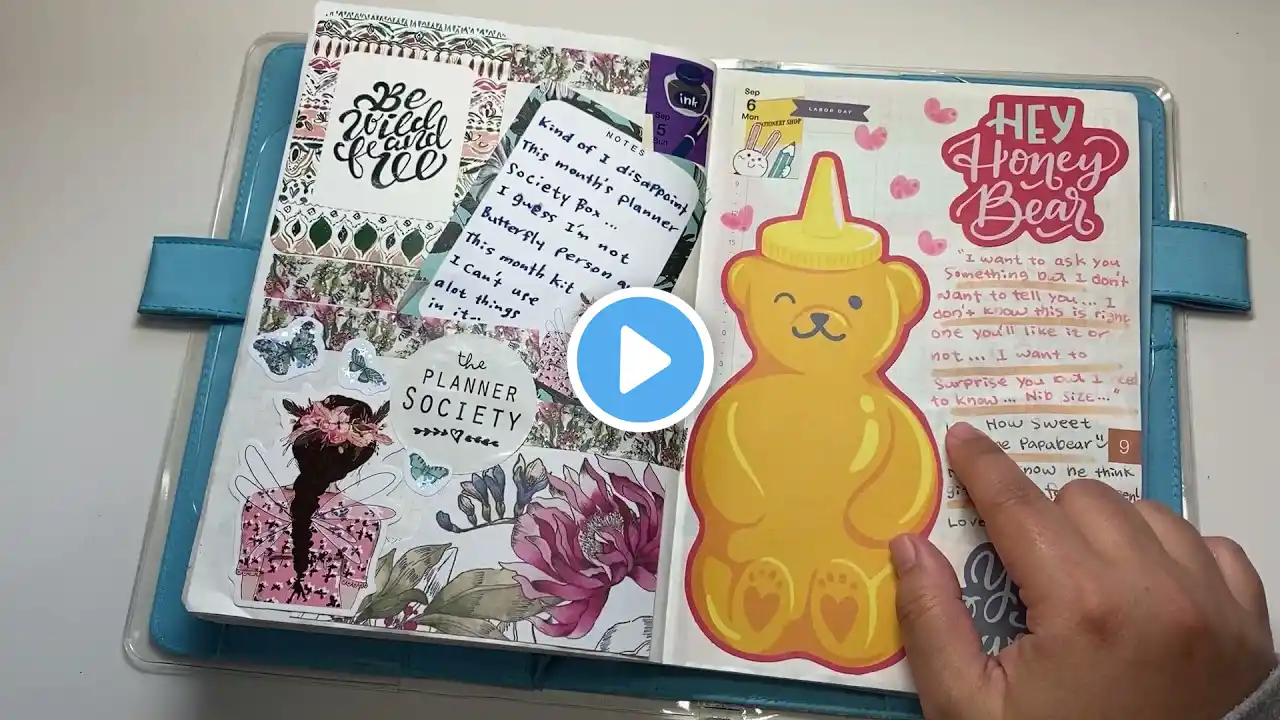 Be
Wild
and
free
NOTES
Kind of I disappoint
This month's Planner
Society Box...
I guess I'm not
Butterfly person
This month kit
I can't use
alot things
in it...
the
PLANNER
SOCIETY
ink
Sep
5
Sun
Sep
6
Mon
LABOR DAY
STATIONERY SHOP
9
15
HEY
Honey
Bear
"I want to ask you
Something but I don't
want to tell you... I
don't know this is right
one you'll like it or
not... I want to
Surprise you but I
to know... Nib Size..."
How Sweet
Papabear
9
know he think
Love